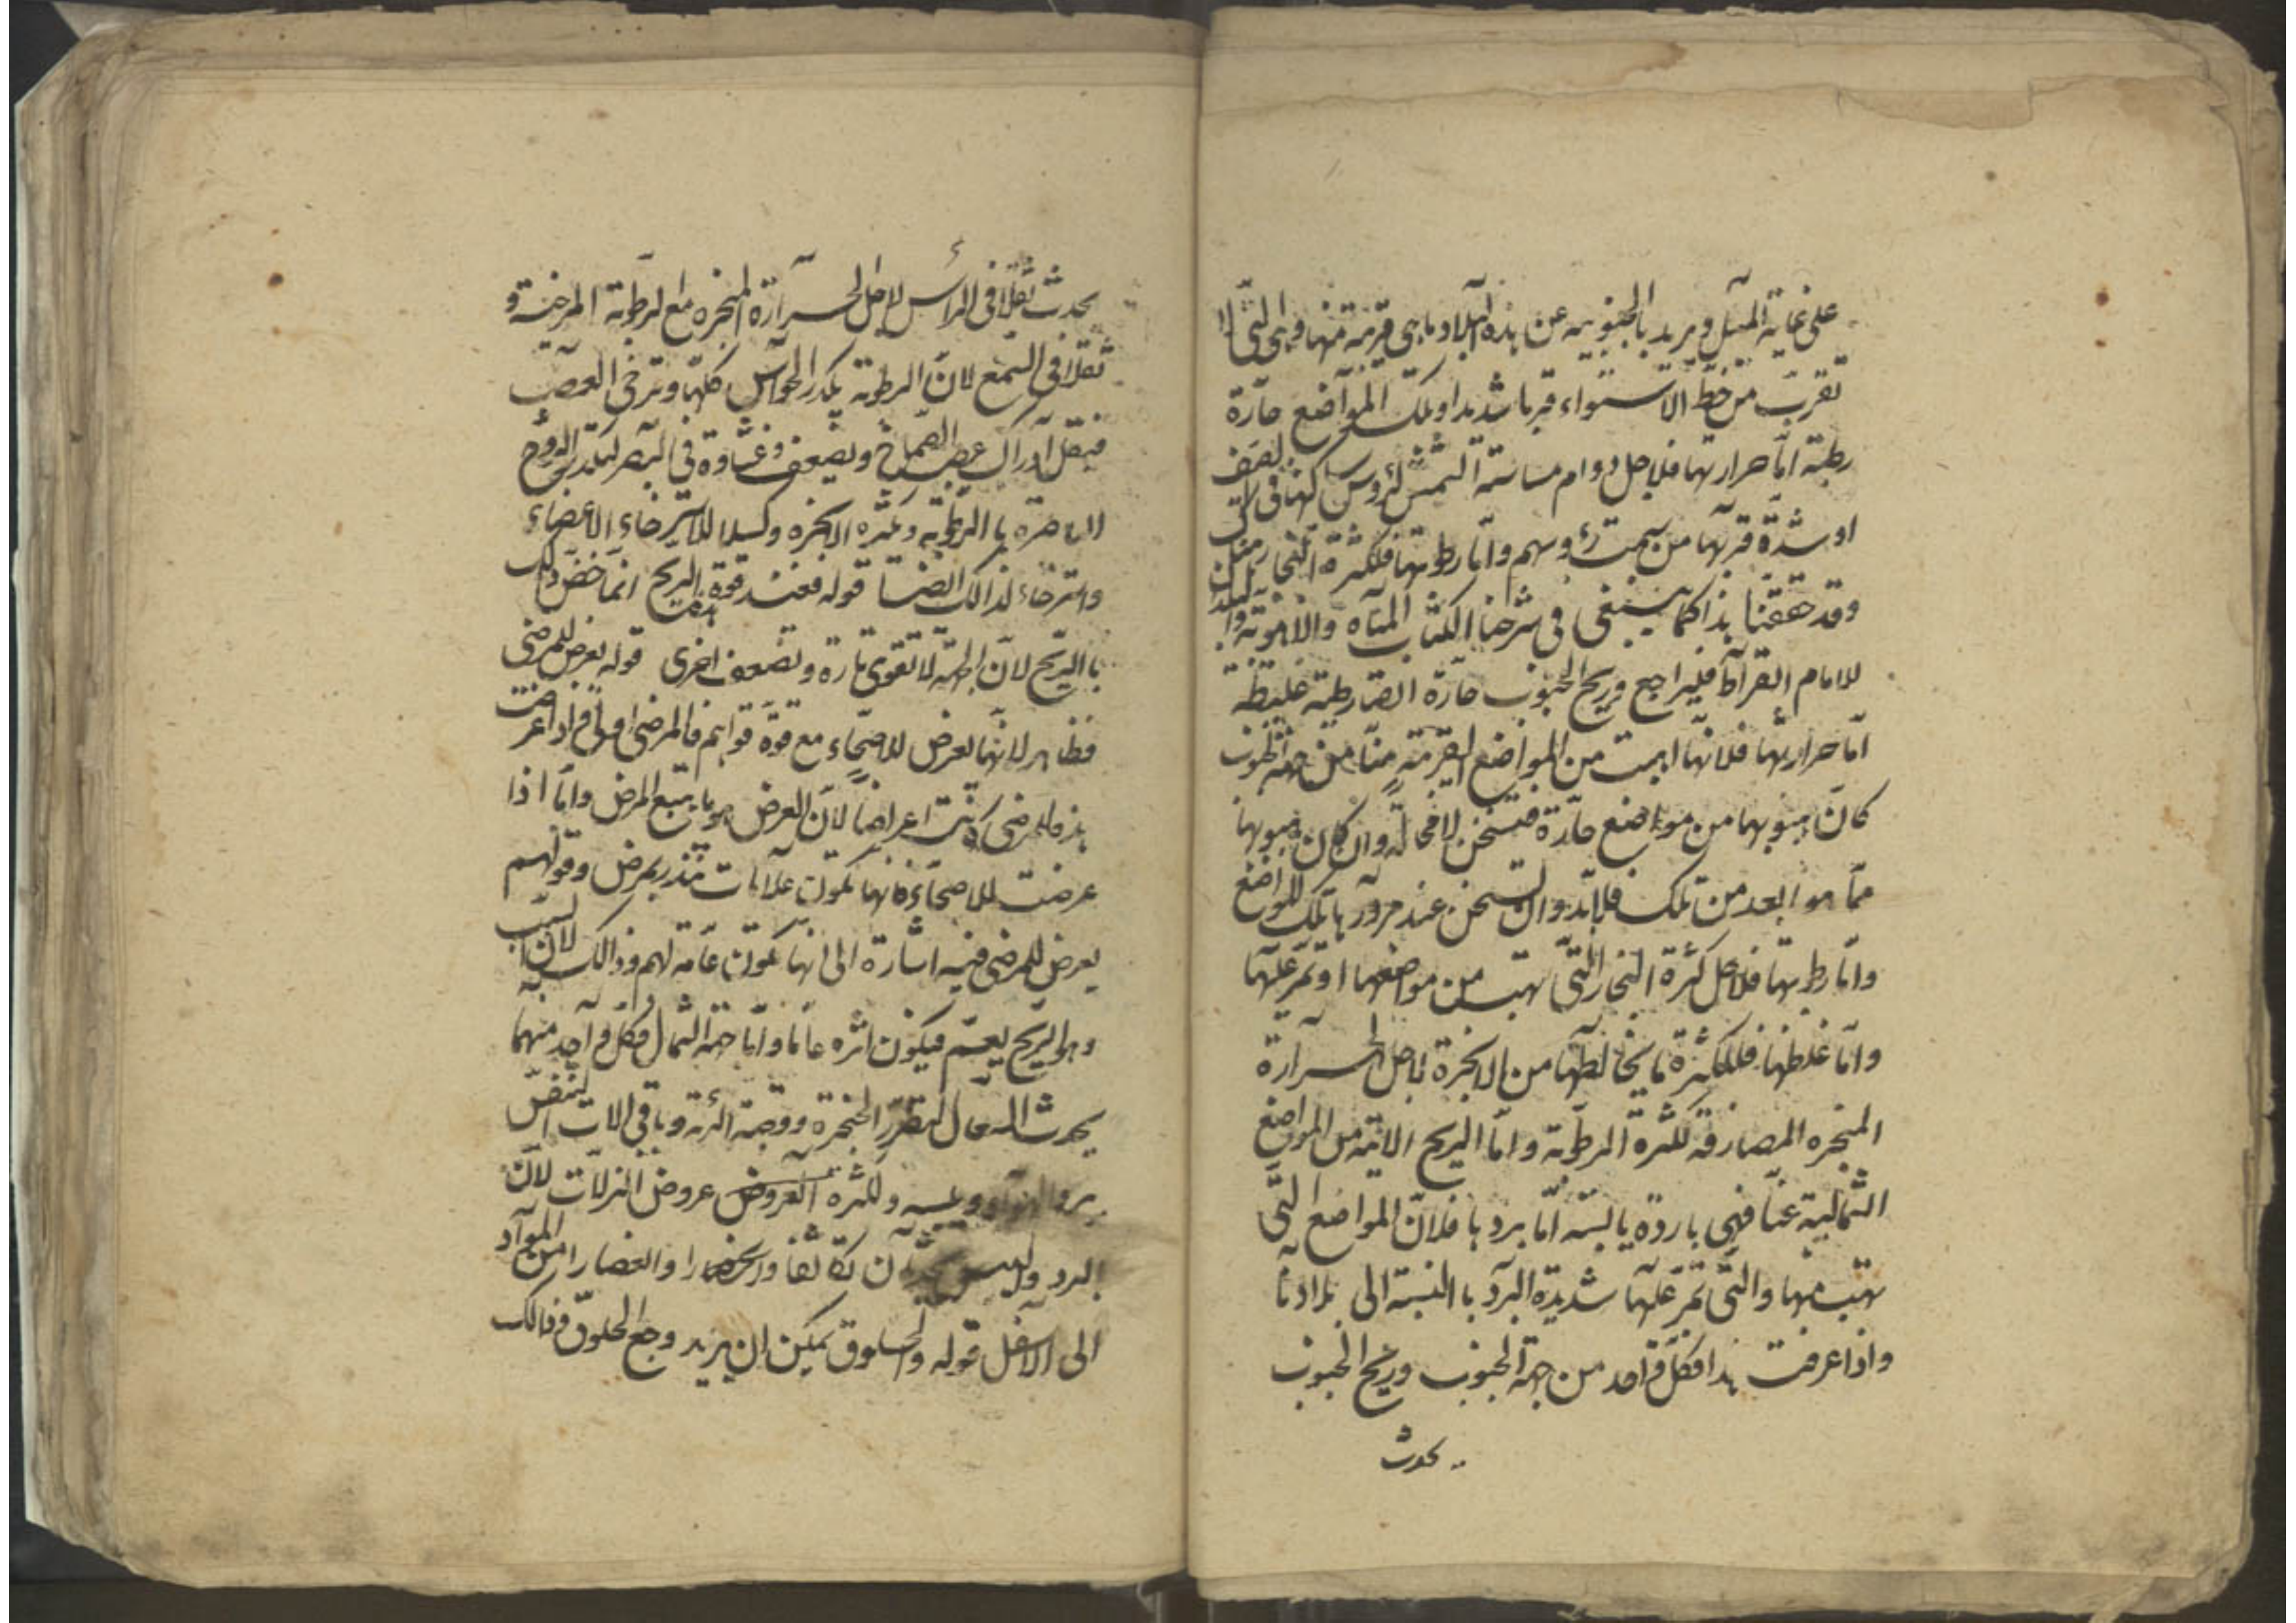 على غاية الميل ويريد بالجنوبية عن هذه البلاد ما هي قريبة منها وهي التي لا
تقرب من خط الاستواء قربا شديدا وتلك المواضع حارة
رطبة اما حرارتها فلاجل دوام مسامتة الشمس لرؤس
او شدة قربها من سمت رؤسهم واما رطوبتها فلكثرة البخار
وقد حققنا هذا كما ينبغي في شرحنا الكتاب المياه والاهوية
للامام ابقراط فليراجع وريح الجنوب حارة ايضا رطبة غليظة
اما حرارتها فلانها اهبت من المواضع القريبة منا من جهة الجنوب
كان هبوبها من مواضع حارة فتسخن لا محالة وان كان هبوبها
مما هو ابعد من تلك فلا بد وان تسخن عند مرورها بتلك المواضع
واما رطوبتها فلاجل كثرة البخار التي تهب من مواضعها او تمر عليها
واما غلظها فلكثرة ما يخالطها من الابخرة لاجل الحرارة
المبخرة المصادفة لكثرة الرطوبة واما الريح الاتية من المواضع
الشمالية عنا فهي باردة يابسة اما بردها فلان المواضع التي
تهب منها والتي تمر عليها شديدة البرد بالنسبة الى بلادنا
واذا عرفت هذا فكل واحد من جهة الجنوب وريح الجنوب
يحدث
يحدث ثقلا في الرأس لاجل الحرارة المبخرة مع الرطوبة المرخية و
ثقلا في السمع لان الرطوبة يكدر الحواس كلها وترخي العصب
فيقل ادراك عصب الصماخ ويضعف وغشاوة في البصر لتكدر الروح
الباصرة بالرطوبة وكثرة الابخرة وكسلا للاسترخاء الاعضاء
واسترخاء لذالك ايضا قوله فعند قوة هذه الريح انما خص ذلك
بالريح لان الجهة لا تقوى تارة وتضعف اخرى قوله يعرض للمرضى
فظاهر لانها تعرض للاصحاء مع قوة قواهم فالمرضى اولى واذا عرضت
هذه للمرضى كانت اعراضا لان العرض هو ما يتبع المرض واما اذا
عرضت للاصحاء فانها تكون علامات تنذر بمرض وقولهم
يعرض للمرضى فيه اشارة الى انها تكون عامة لهم وذالك لان السبب
وهو الريح يعم فيكون اثره عاما واما جهة الشمال فكل واحد منهما
يحدث السعال لتضرر الحنجرة وقصبة الرئة وباقي الات التنفس
ببرد الهواء ويبسه ولكثرة العروض عروض النزلات لان
البرد واليبس يحدثان تكاثفا وانحصارا وانعصارا من المواد
الى الاسفل قوله والحلوق يمكن ان يريد وجع الحلوق وذالك